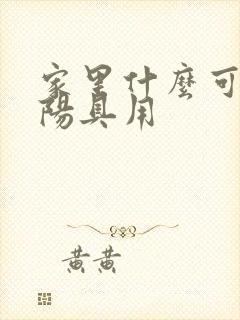 家里什麼可
陽具用
黃黃